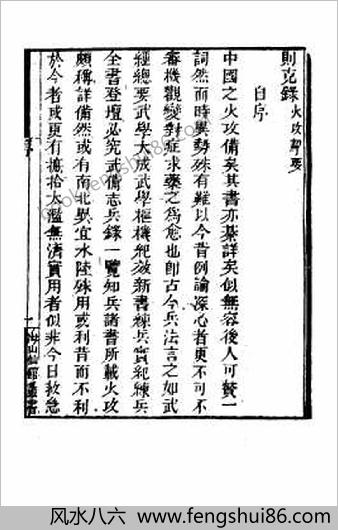 則克錄 火攻挈要
自序
中國之火攻備矣其書亦綦詳矣似無容後人可贅一
詞然而時異勢殊有難以今昔例論深心者更不可不
審機觀變對症求藥之為愈也卽古今兵法言之如武
經總要武學大成武學樞機紀效新書練兵實紀練兵
全書登壇必究武備志兵錄一覽知兵諸書所載火攻
頗稱詳備然或有南北異宜水陸殊用或利昔而不利
於今者或更有摭拾太濫無濟實用者似非今日救急
一
海山仙館叢書
風水八六 - www.fengshui86.com